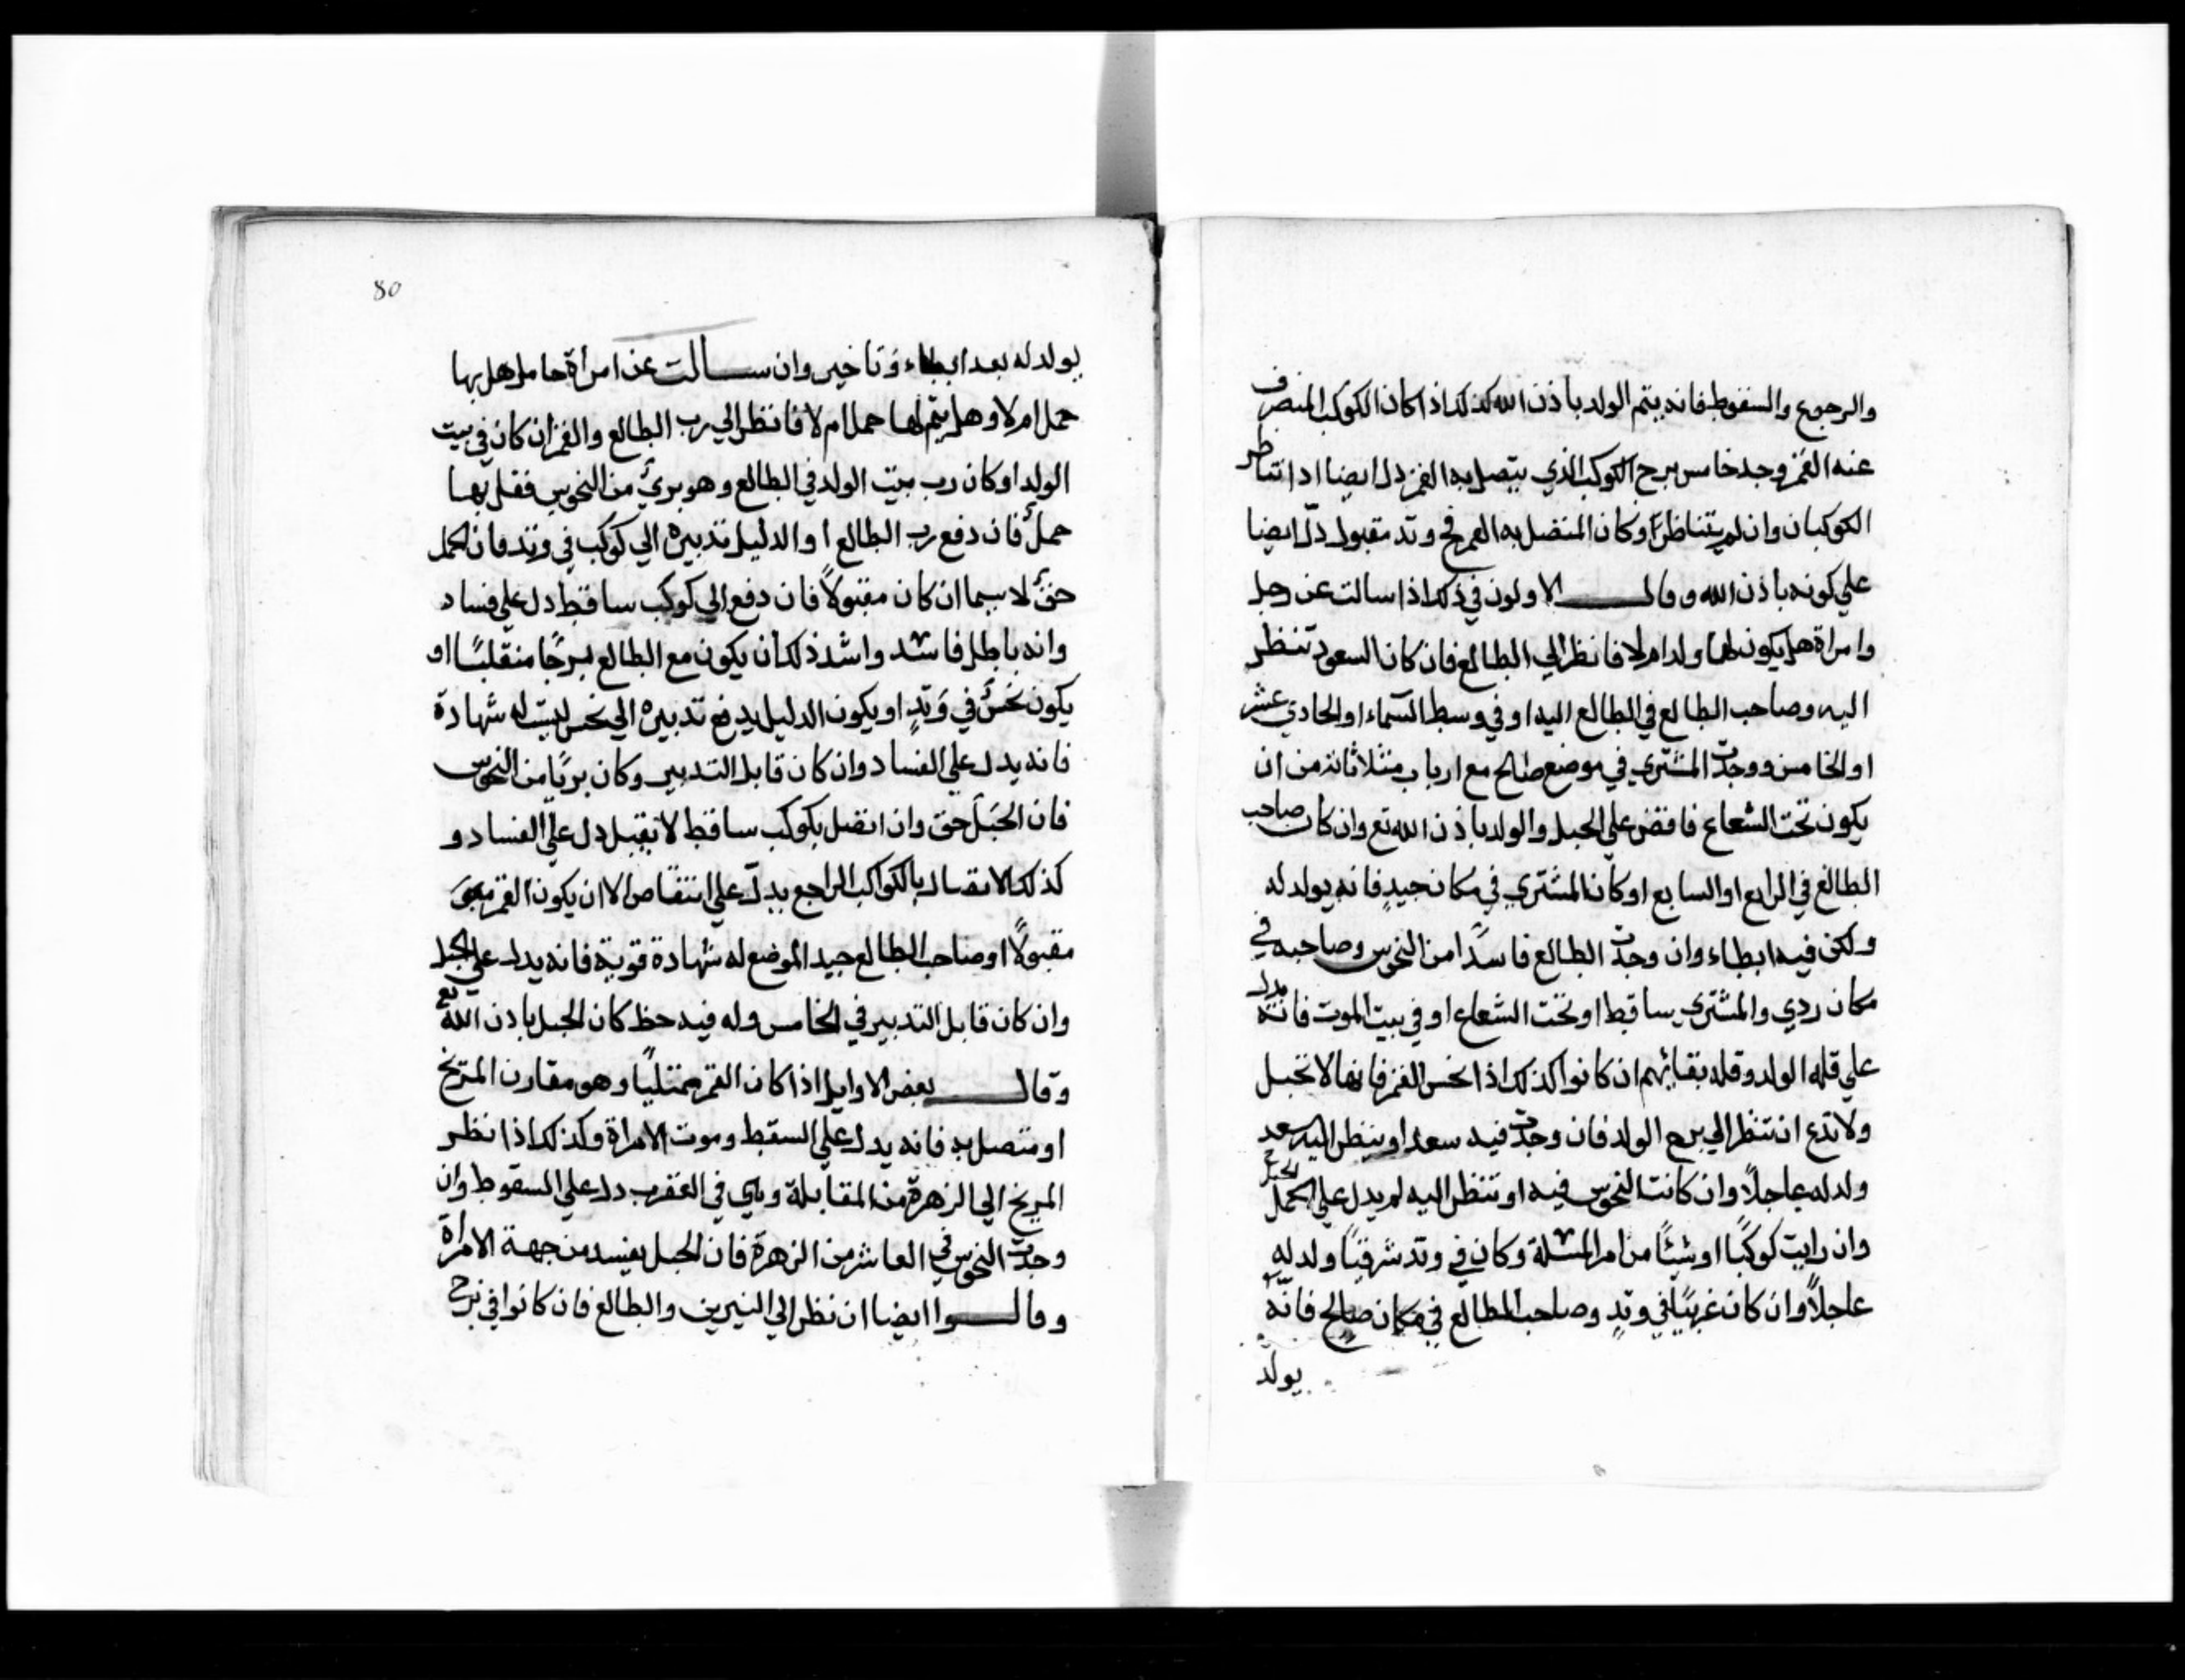 والرجوع والسقوط فانه يتم الولد باذن الله كذلك اذا كان الكوكب المنصرف
عنه القمر وجد خامس برج الكوكب الذي يتصل به القمر دل ايضا اذا تناظر
الكوكبان وان لم يتناظرا وكان المتصل به القمر في وتد مقبول دلّ ايضا
علي كونه باذن الله وقال الاولون في ذلك اذا سالت عن رجل
وامراة هل يكون لهما ولد ام لا فانظر الي الطالع فان كان السعود تنظر
اليه وصاحب الطالع في الطالع اليه او في وسط السماء او الحادي عشر
او الخامس ووجدت المشتري في موضع صالح مع ارباب مثلاثاته من ان
يكون تحت الشعاع فاقض علي الحبل والولد باذن الله تع وان كان صاحب
الطالع في الرابع او السابع او كان المشتري في مكان جيدٍ فانه يولد له
ولكن فيه ابطاء وان وجدت الطالع فاسدًا من النحوس وصاحبه في
مكان ردي والمشتري ساقط او تحت الشعاع او في بيت الموت فانه يدل
علي قله الولد وقله بقائهم ان كانوا كذلك اذا نحس القمر فانها لا تحبل
ولا تدع ان تنظر الي برج الولد فان وجدت فيه سعدا او ينظر اليه سعد
ولد له عاجلاً وان كانت النحوس فيه او تنظر اليه لم يدل علي الحمل الحبل
وان رايت كوكبًا او شيئًا من امر المسلة وكان في وتد شرقيًا ولد له
عاجلاً وان كان غربيًا في وتدٍ وصاحب الطالع في مكان صالح فانّه
يولد
80
يولد له بعد ابطاء وتاخير وان سالت عن امراة حامل هل بها
حمل ام لا وهل يتم لها حمل ام لا فانظر الي رب الطالع والقمر ان كان في بيت
الولد او كان رب بيت الولد في الطالع وهو برئ من النحوس فقل بها
حملٌ فان دفع رب الطالع او الدليل تدبيره الي كوكب في وتد فان الحمل
حقٌ لا سيما ان كان مقبولاً فان دفع الي كوكب ساقط دل علي فساد
وانه باطل فاسد واشد ذلك ان يكون مع الطالع برجًا منقلبًا او
يكون نحسٌ في وتدٍ او يكون الدليل يدفع تدبيره الي نحس ليست له شهادة
فانه يدل علي الفساد وان كان قابل التدبير وكان بريًا من النحوس
فان الحبل حق وان اتصل بكوكب ساقط لا يقبل دل علي الفساد و
كذلك الاتصال بالكواكب الراجع يدلّ علي انتقاص الا ان يكون القمر
مقبولاً او صاحب الطالع جيد الموضع له شهادة قوية فانه يدل علي الحبل
وان كان قابل التدبير في الخامس وله فيه حظ كان الحبل باذن الله تع
وقال بعض الاوايل اذا كان القمر ممتليًا وهو مقارن المريخ
او متصل به فانه يدل علي السقط وموت الامراة وكذلك اذا نظر
المريخ الي الزهرة من المقابلة وهي في العقرب دل علي السقوط وان
وجدت النحوس في العاشر من الزهرة فان الحبل يفسد من جهة الامراة
وقالوا ايضا ان نظر الي النيرين والطالع فان كانوا في برج